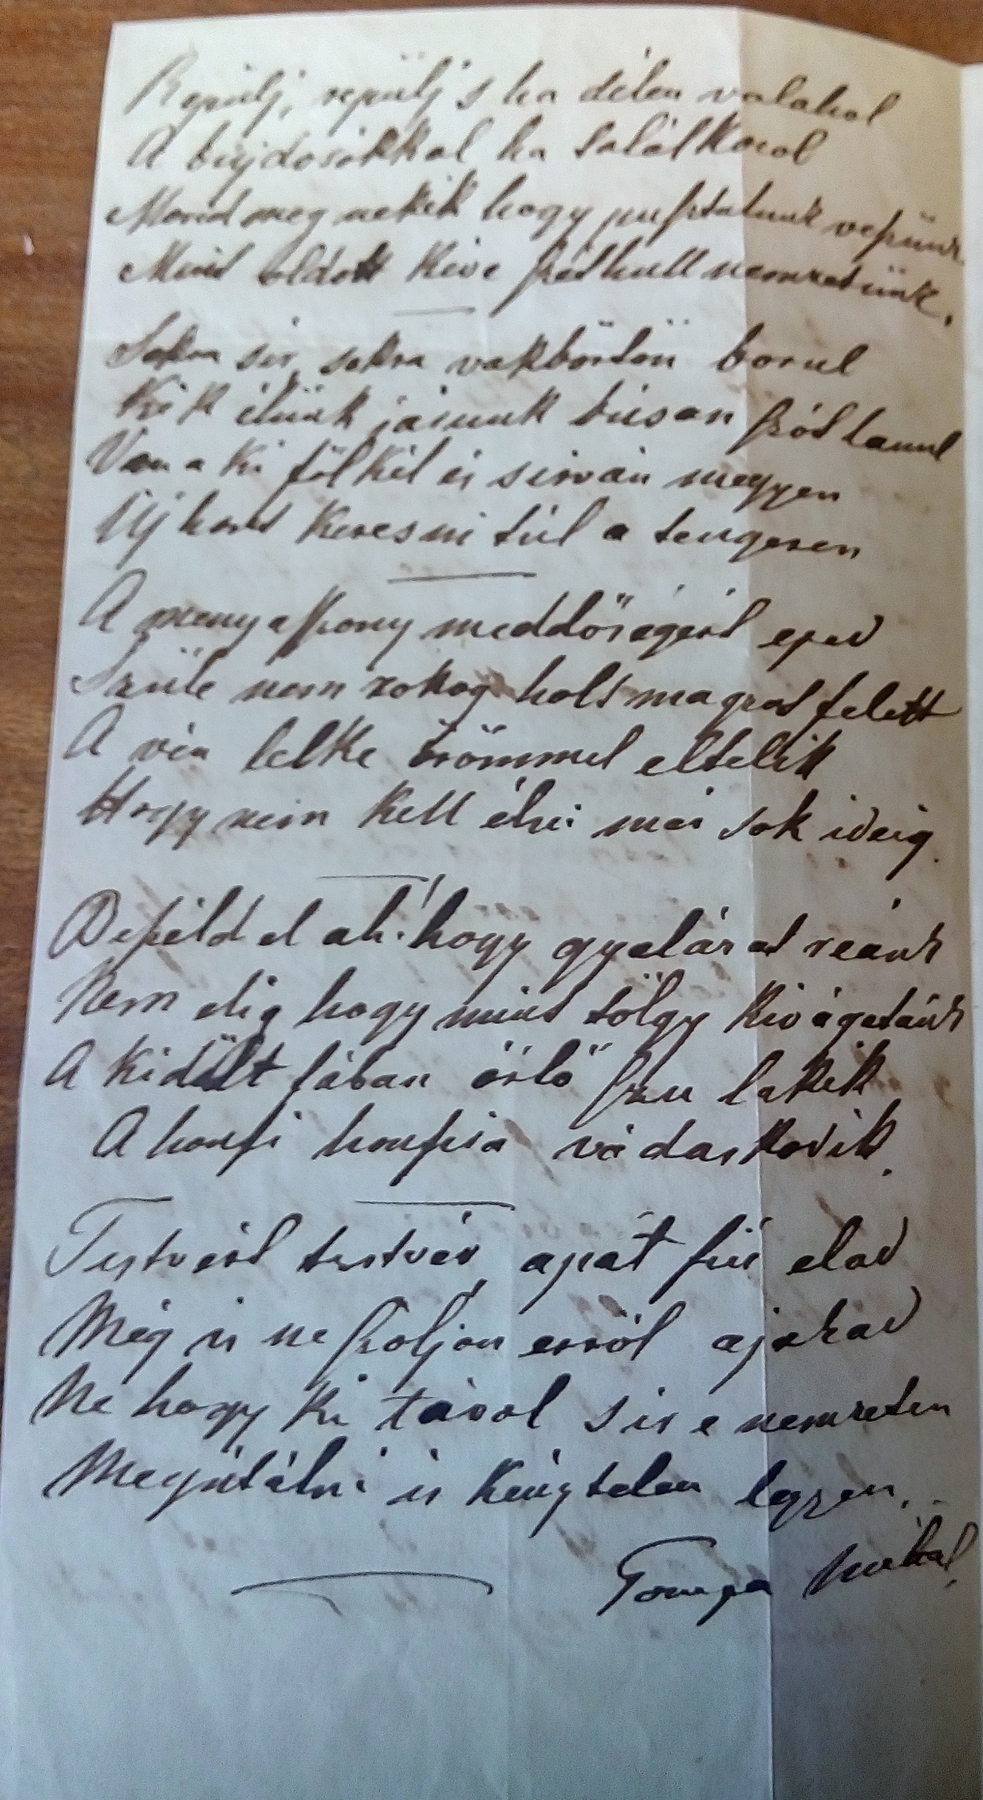 Repülj, repülj s ha délen valahol
A bujdosókkal ha találkozol
Mond meg nekik hogy pusztulunk veszünk
Mint oldott kéve széthull nemzetünk.
Sokra sir, sokra vakbörtön borul
Kik élünk járunk búsan szótlanul
Van a ki fölkél és sirván megyen
Uj hont keresni túl a tengeren
A menyasszony meddőségért eped
Szüle nem zokog holt magzat felett
A vén lelke örömmel eltelik
Hogy nem kell élni már sok ideig.
Beszéld el ah! hogy gyalázat reánk
Nem elég hogy mint tölgy kivágatánk
A kidült fában őrlő szu lakik
A honfi honfira vádaskodik.
Testvért testvér, apát fiú elad
Még is ne szóljon erről ajakad
Ne hogy ki távol sir e nemzeten
Megútálni is kénytelen legyen.
Tompa Mihál,